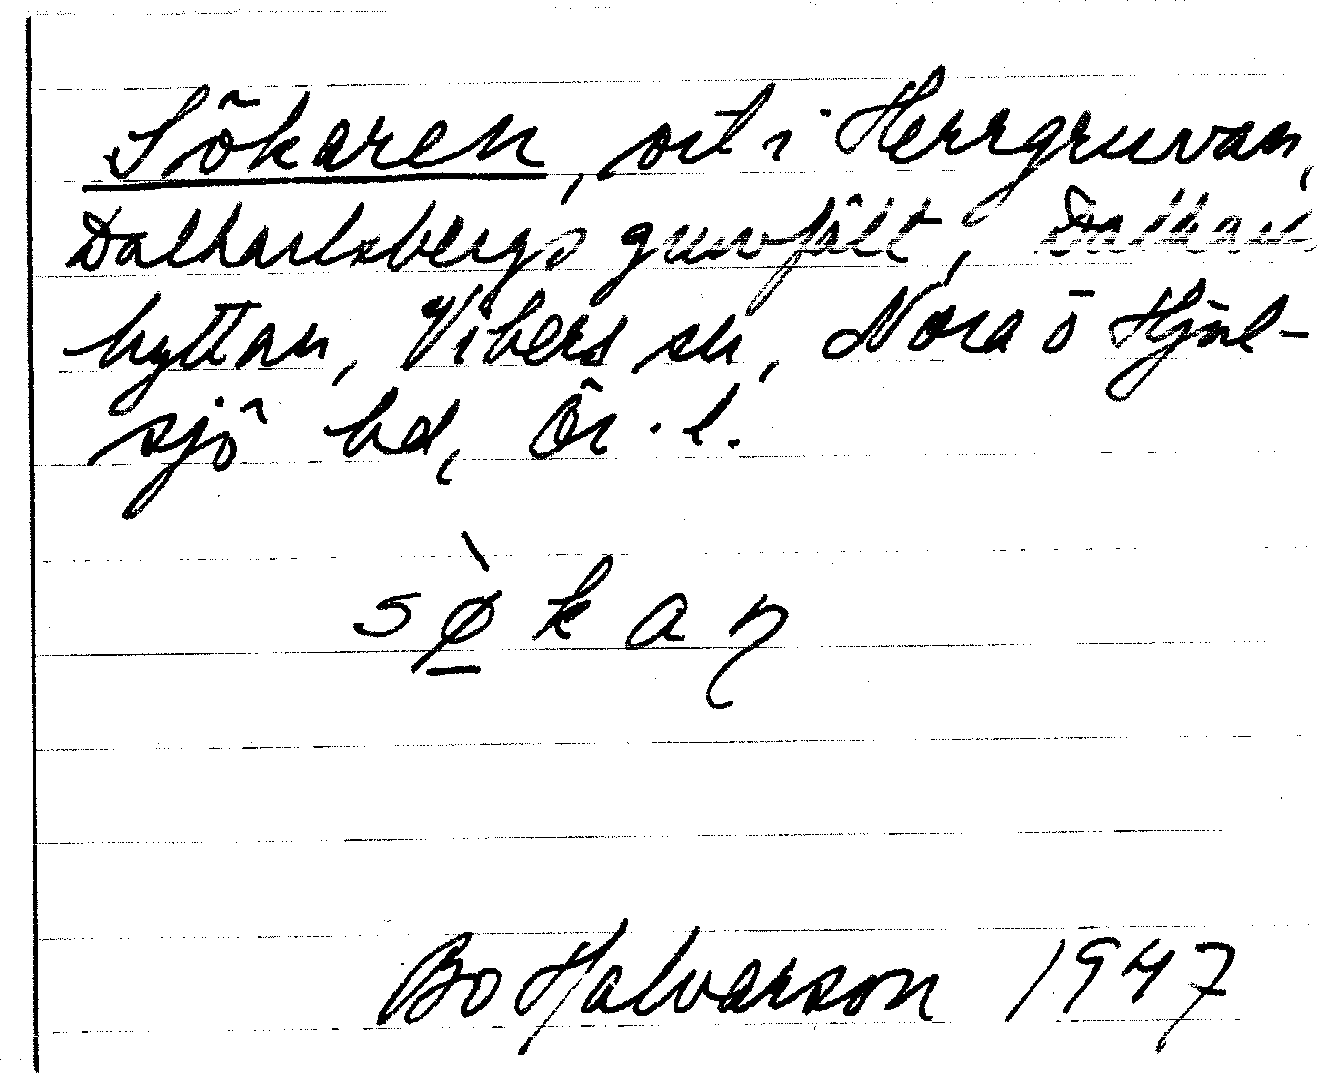 Sökaren, ort i Herrgruvan,
Dalkarlsbergs gruvfält, Dalkarls
hyttan, Vikers sn, Nora o Hjul-
sjö bd, Ör. l.
sø̀kaɳ
Bo Halvarson 1947